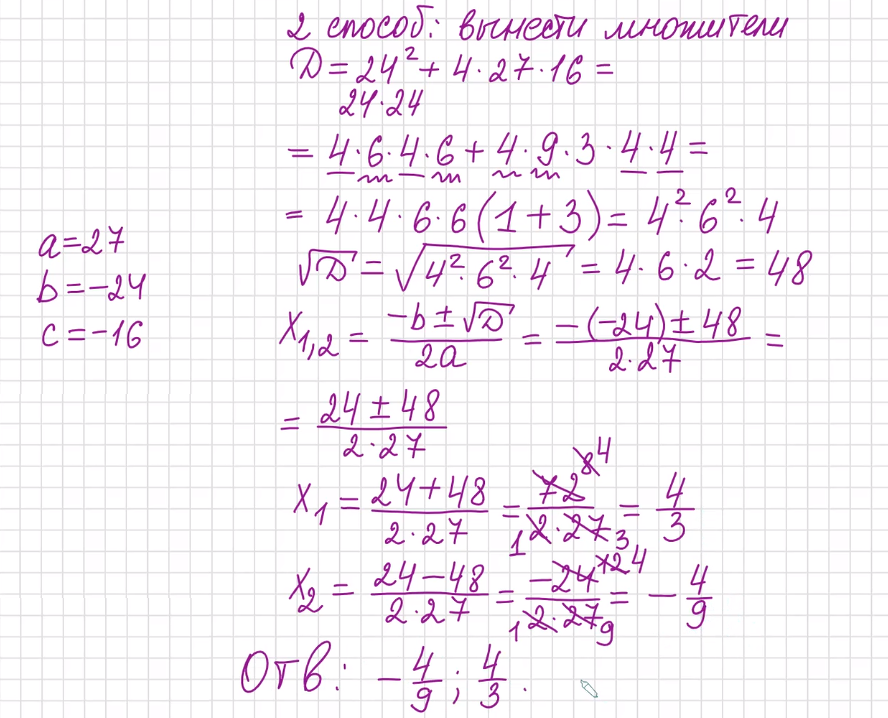 2 способ: вынести множители
D = 24² + 4·27·16 =
24·24
= 4·6·4·6 + 4·9·3·4·4 =
= 4·4·6·6(1+3) = 4²·6²·4
a=27
√D = √4²·6²·4 = 4·6·2 = 48
b=-24
c=-16
X₁,₂ = (-b±√D)/(2a) = (-(-24)±48)/(2·27) =
= (24±48)/(2·27)
X₁ = (24+48)/(2·27) = 72 8 4/(1 2·27 3) = 4/3
X₂ = (24-48)/(2·27) = -24 12 4/(1 2·27 9) = -4/9
Отв: -4/9; 4/3.